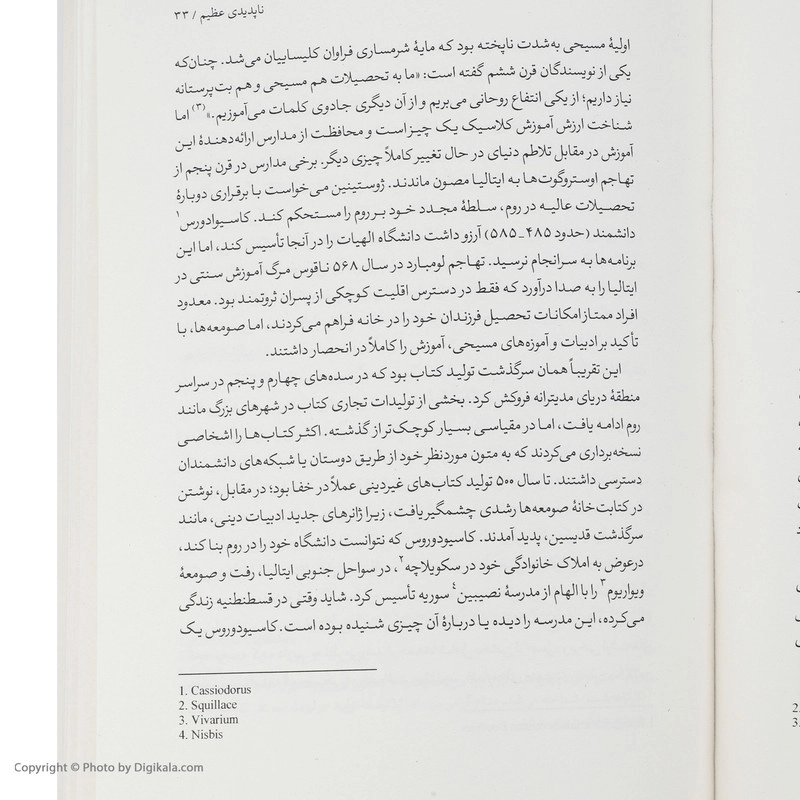 ناپدیدی عظیم / ۳۳
اولیهٔ مسیحی به‌شدت ناپخته بود که مایهٔ شرمساری فراوان کلیساییان می‌شد. چنان‌که
یکی از نویسندگان قرن ششم گفته است: «ما به تحصیلات هم مسیحی و هم بت‌پرستانه
نیاز داریم؛ از یکی انتفاع روحانی می‌بریم و از آن دیگری جادوی کلمات می‌آموزیم.»(۳) اما
شناخت ارزش آموزش کلاسیک یک چیز است و محافظت از مدارس ارائه‌دهندهٔ این
آموزش در مقابل تلاطم دنیای در حال تغییر کاملاً چیزی دیگر. برخی مدارس در قرن پنجم از
تهاجم اوستروگوت‌ها به ایتالیا مصون ماندند. ژوستینین می‌خواست با برقراری دوبارهٔ
تحصیلات عالیه در روم، سلطهٔ مجدد خود بر روم را مستحکم کند. کاسیوادورس۱
دانشمند (حدود ۴۸۵ـ۵۸۵) آرزو داشت دانشگاه الهیات را در آنجا تأسیس کند، اما این
برنامه‌ها به سرانجام نرسید. تهاجم لومبارد در سال ۵۶۸ ناقوس مرگ آموزش سنتی در
ایتالیا را به صدا درآورد که فقط در دسترس اقلیت کوچکی از پسران ثروتمند بود. معدود
افراد ممتاز امکانات تحصیل فرزندان خود را در خانه فراهم می‌کردند، اما صومعه‌ها، با
تأکید بر ادبیات و آموزه‌های مسیحی، آموزش را کاملاً در انحصار داشتند.
این تقریباً همان سرگذشت تولید کتاب بود که در سده‌های چهارم و پنجم در سراسر
منطقهٔ دریای مدیترانه فروکش کرد. بخشی از تولیدات تجاری کتاب در شهرهای بزرگ مانند
روم ادامه یافت، اما در مقیاسی بسیار کوچک‌تر از گذشته. اکثر کتاب‌ها را اشخاصی
نسخه‌برداری می‌کردند که به متون موردنظر خود از طریق دوستان یا شبکه‌های دانشمندان
دسترسی داشتند. تا سال ۵۰۰ تولید کتاب‌های غیردینی عملاً در خفا بود؛ در مقابل، نوشتن
در کتابت‌خانهٔ صومعه‌ها رشدی چشمگیر یافت، زیرا ژانرهای جدید ادبیات دینی، مانند
سرگذشت قدیسین، پدید آمدند. کاسیودوروس که نتوانست دانشگاه خود را در روم بنا کند،
درعوض به املاک خانوادگی خود در سکویلاچه۲، در سواحل جنوبی ایتالیا، رفت و صومعهٔ
ویواریوم۳ را با الهام از مدرسهٔ نصیبین۴ سوریه تأسیس کرد. شاید وقتی در قسطنطنیه زندگی
می‌کرده، این مدرسه را دیده یا دربارهٔ آن چیزی شنیده بوده است. کاسیودوروس یک
1. Cassiodorus
2. Squillace
3. Vivarium
4. Nisbis
Copyright © Photo by Digikala.com